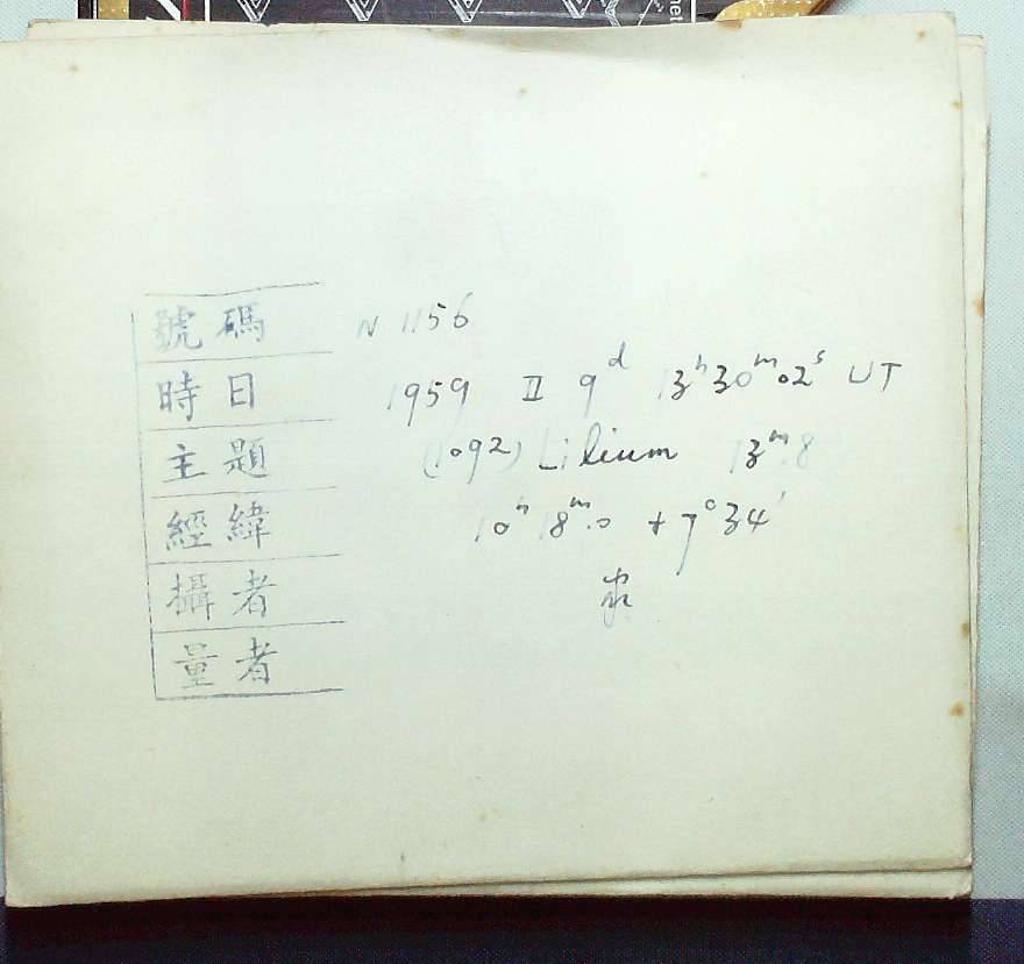 號碼 N 1156
時日 1959 II 9ᵈ 13ʰ30ᵐ02ˢ UT
主題 (1092) Lilium 13ᵐ.8
經緯 10ʰ18ᵐ.0 +7°34'
攝者
量者